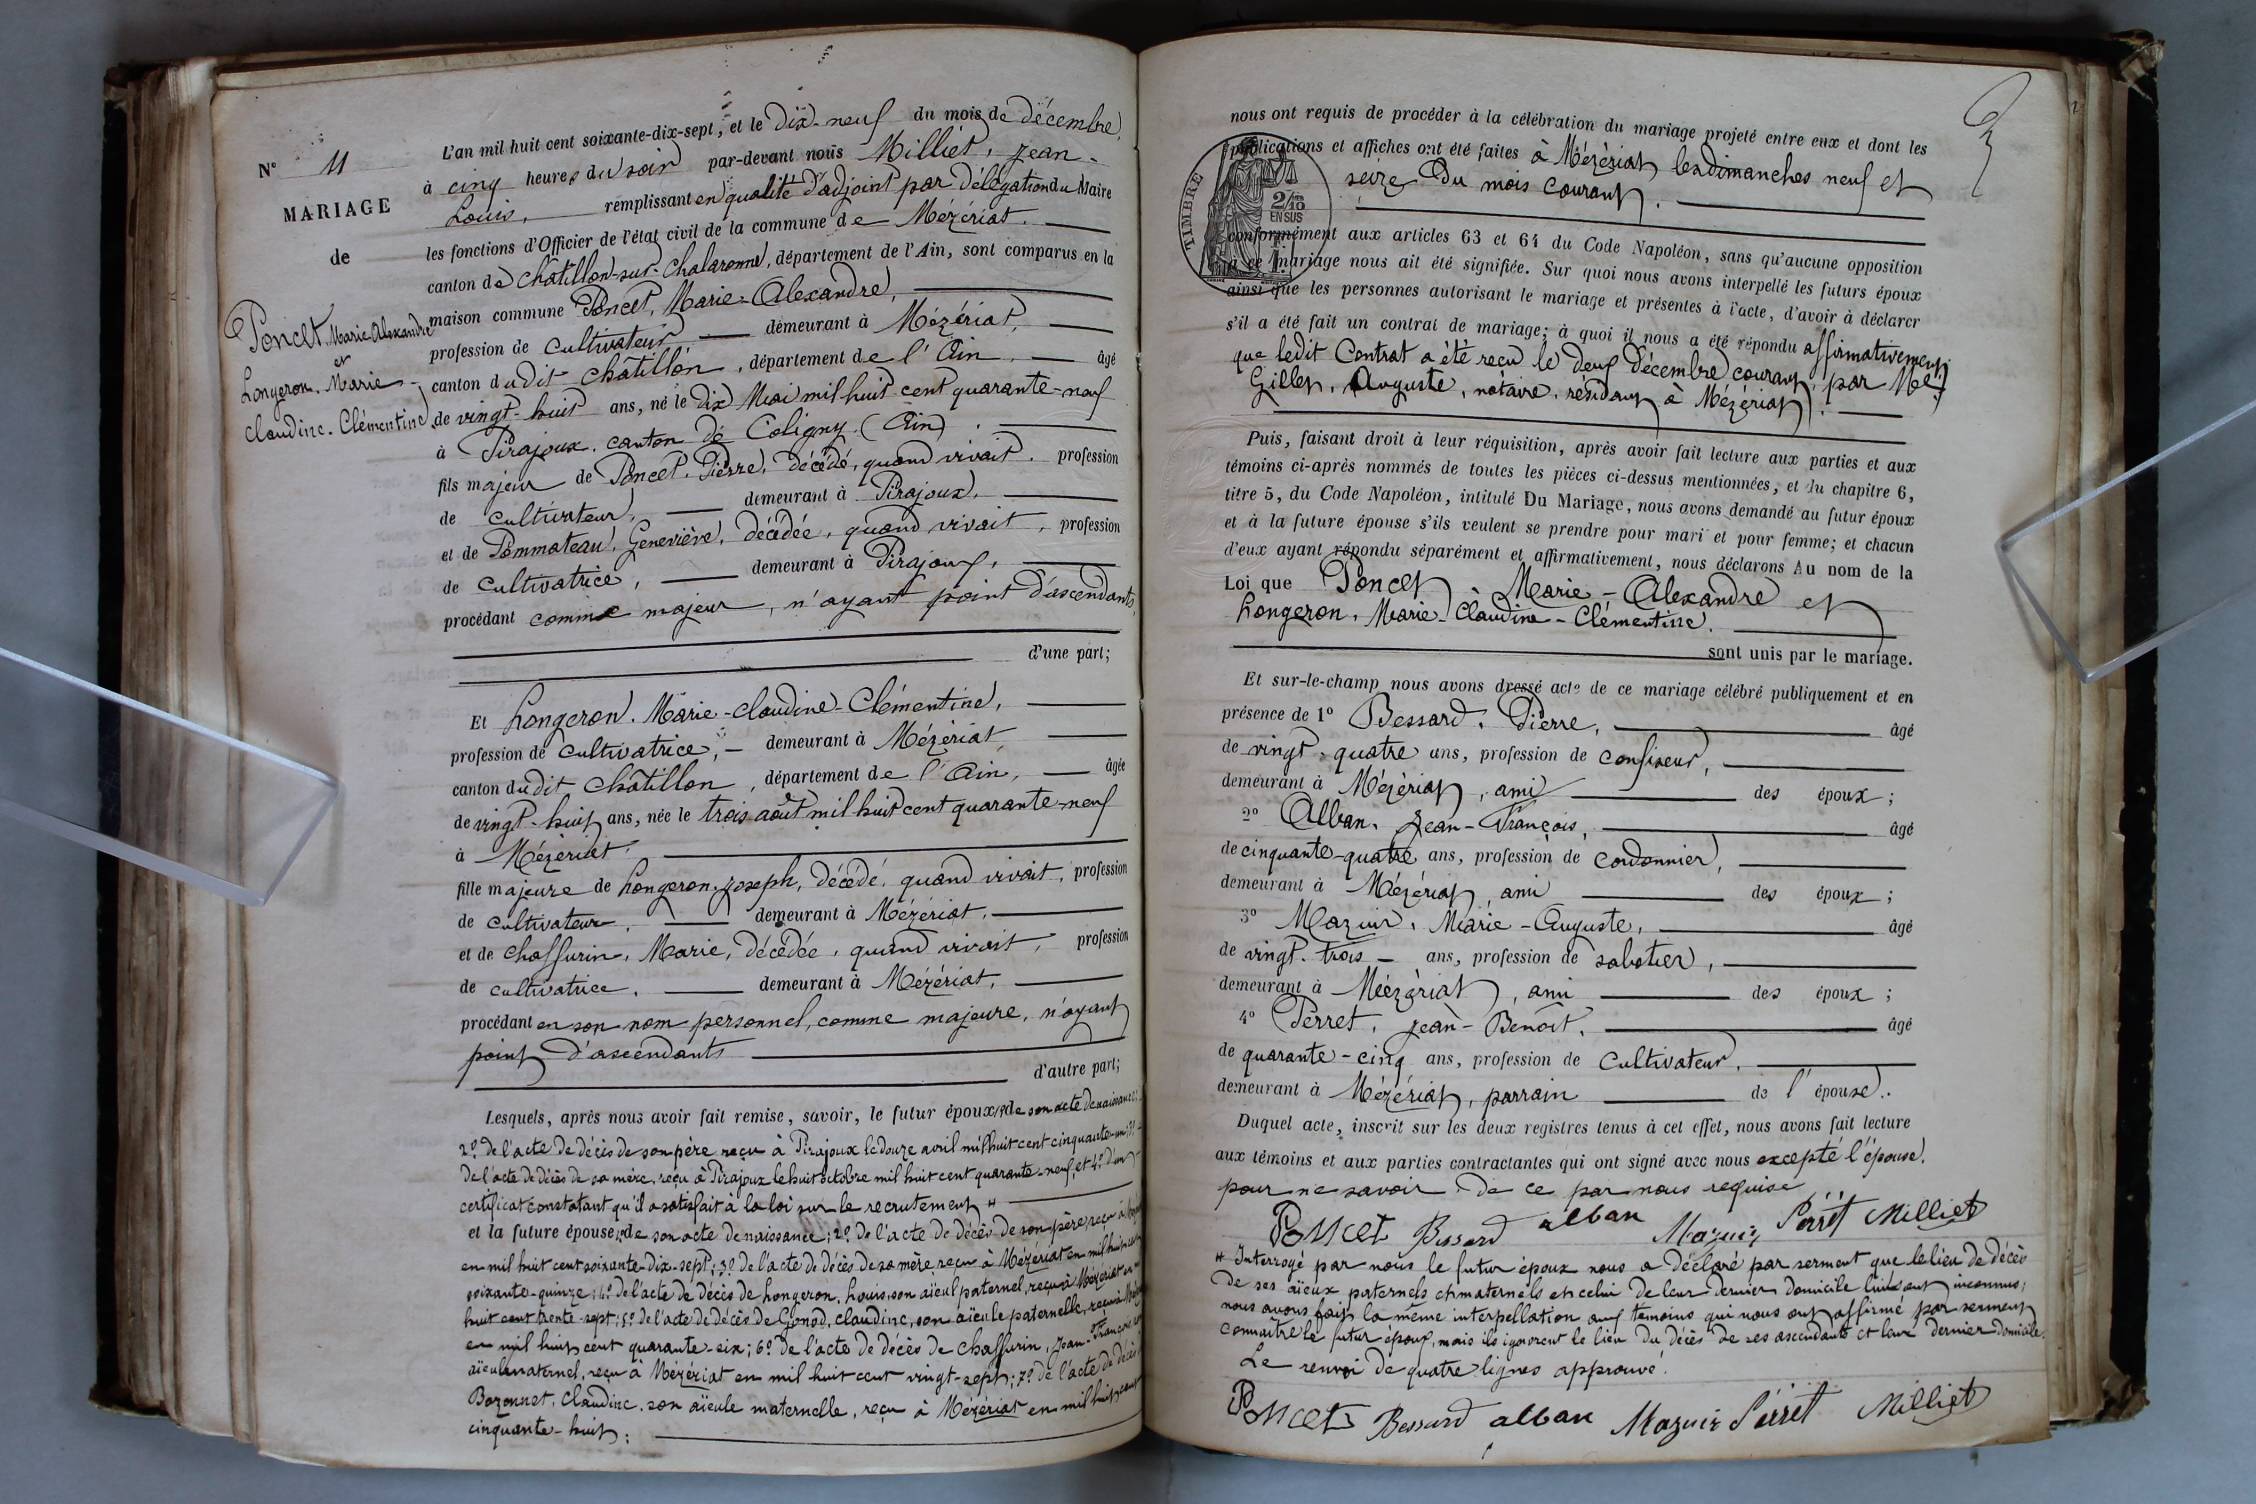 N° 11
MARIAGE
de
Poncet, Marie Alexandre
et
Longeron, Marie-
Claudine-Clémentine
L'an mil huit cent soixante-dix-sept, et le dix-neuf du mois de décembre,
à cinq heures du soir par-devant nous Milliet, Jean-
Louis, remplissant en qualité d'adjoint par délégation du Maire
les fonctions d'Officier de l'état civil de la commune de Mézériat.
canton de Châtillon-sur-Chalaronne, département de l'Ain, sont comparus en la
maison commune Poncet, Marie-Alexandre,
profession de cultivateur demeurant à Mézériat,
canton dudit Châtillon, département de l'Ain, âgé
de vingt-huit ans, né le dix Mai mil huit cent quarante-neuf
à Pirajoux, canton de Coligny (Ain).
fils majeur de Poncet, Pierre, décédé, quand vivait, profession
de cultivateur, demeurant à Pirajoux,
et de Pommateau, Geneviève, décédée, quand vivait, profession
de cultivatrice, demeurant à Pirajoux,
procédant comme majeur, n'ayant point d'ascendants,
d'une part;
Et Longeron, Marie-Claudine-Clémentine,
profession de cultivatrice, demeurant à Mézériat,
canton dudit Châtillon, département de l'Ain, âgée
de vingt-huit ans, née le trois août mil huit cent quarante-neuf
à Mézériat,
fille majeure de Longeron, Joseph, décédé, quand vivait, profession
de cultivateur, demeurant à Mézériat,
et de Chassurin, Marie, décédée, quand vivait, profession
de cultivatrice, demeurant à Mézériat,
procédant en son nom personnel, comme majeure, n'ayant
point d'ascendants
d'autre part;
Lesquels, après nous avoir fait remise, savoir, le futur époux, 1° de son acte de naissance;
2° de l'acte de décès de son père reçu à Pirajoux le douze avril mil huit cent cinquante-un; 3°
de l'acte de décès de sa mère, reçu à Pirajoux le huit octobre mil huit cent quarante-neuf, et 4° d'un
certificat constatant qu'il a satisfait à la loi sur le recrutement #
et la future épouse, 1° de son acte de naissance; 2° de l'acte de décès de son père reçu à
en mil huit cent soixante-dix-sept; 3° de l'acte de décès de sa mère reçu à Mézériat en mil huit cent
soixante-quinze; 4° de l'acte de décès de Longeron, Louis, son aïeul paternel, reçu à Mézériat en mil
huit cent trente-sept; 5° de l'acte de décès de Gonod, Claudine, son aïeule paternelle, reçu à Mézériat
en mil huit cent quarante-six; 6° de l'acte de décès de Chassurin, Jean-François, son
aïeul maternel, reçu à Mézériat en mil huit cent vingt-sept; 7° de l'acte de décès de
Bozonnet, Claudine, son aïeule maternelle, reçu à Mézériat en mil huit cent
cinquante-huit;
nous ont requis de procéder à la célébration du mariage projeté entre eux et dont les
publications et affiches ont été faites à Mézériat les dimanches neuf et
seize du mois courant.
TIMBRE
2/10
EN SUS
conformément aux articles 63 et 64 du Code Napoléon, sans qu'aucune opposition
à ce mariage nous ait été signifiée. Sur quoi nous avons interpellé les futurs époux
ainsi que les personnes autorisant le mariage et présentes à l'acte, d'avoir à déclarer
s'il a été fait un contrat de mariage; à quoi il nous a été répondu affirmativement,
que ledit Contrat a été reçu le deux Décembre courant, par Me
Gillet, Auguste, notaire, résidant à Mézériat.
Puis, faisant droit à leur réquisition, après avoir fait lecture aux parties et aux
témoins ci-après nommés de toutes les pièces ci-dessus mentionnées, et du chapitre 6,
titre 5, du Code Napoléon, intitulé Du Mariage, nous avons demandé au futur époux
et à la future épouse s'ils veulent se prendre pour mari et pour femme; et chacun
d'eux ayant répondu séparément et affirmativement, nous déclarons Au nom de la
Loi que Poncet, Marie-Alexandre et
Longeron, Marie-Claudine-Clémentine.
sont unis par le mariage.
Et sur-le-champ nous avons dressé acte de ce mariage célébré publiquement et en
présence de 1° Bessard, Pierre, âgé
de vingt-quatre ans, profession de confiseur,
demeurant à Mézériat, ami des époux;
2° Alban, Jean-François, âgé
de cinquante-quatre ans, profession de cordonnier,
demeurant à Mézériat, ami des époux;
3° Mazuir, Marie-Auguste, âgé
de vingt-trois ans, profession de sabotier,
demeurant à Méézériat, ami des époux;
4° Perret, Jean-Benoît, âgé
de quarante-cinq ans, profession de cultivateur,
demeurant à Mézériat, parrain de l'épouse.
Duquel acte, inscrit sur les deux registres tenus à cet effet, nous avons fait lecture
aux témoins et aux parties contractantes qui ont signé avec nous excepté l'épouse,
pour ne savoir, de ce par nous requise
Poncet Bessard alban Mazuir Perret Milliet
# Interrogé par nous le futur époux nous a déclaré par serment que le lieu de décès
de ses aïeux paternels et maternels et celui de leur dernier domicile lui sont inconnus;
nous avons fait la même interpellation aux témoins qui nous ont affirmé par serment
connaître le futur époux, mais ils ignorent le lieu du décès de ses ascendants et leur dernier domicile.
Le renvoi de quatre lignes approuvé.
Poncet Bessard alban Mazuir Perret Milliet